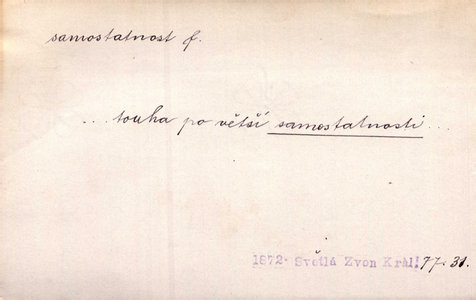 samostatnost f.
... touha po větší samostatnosti ...
1872 Světlá Zvon Král. 77.31.